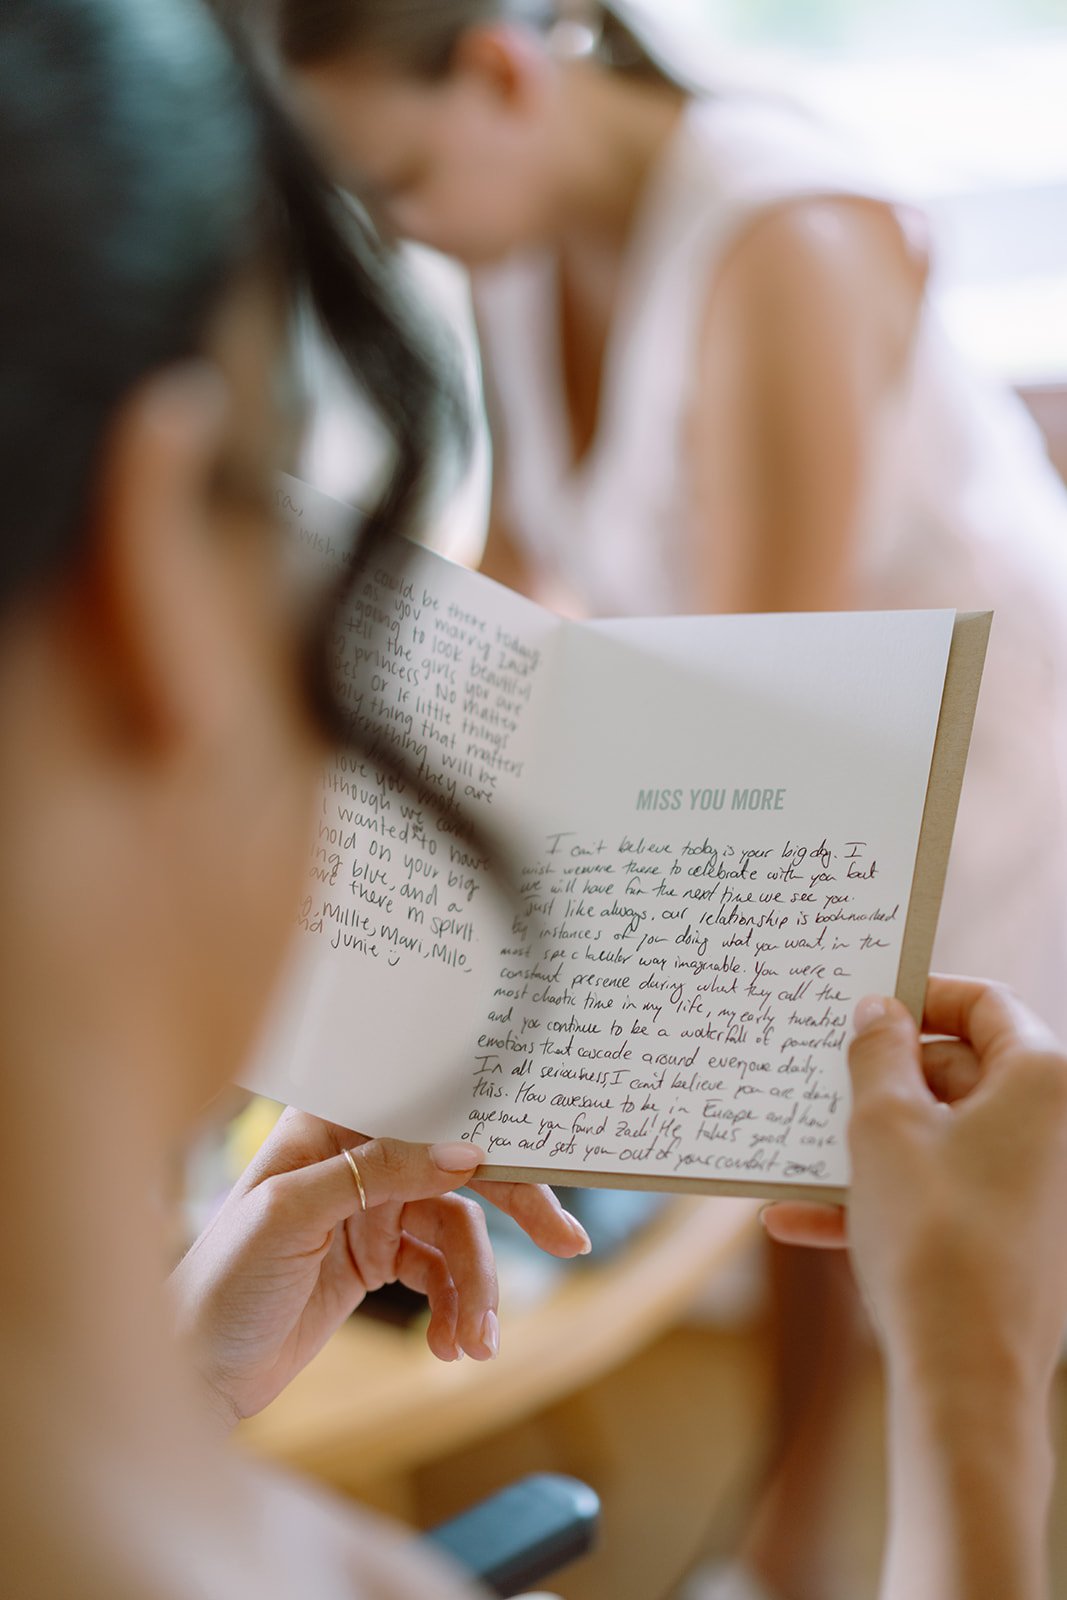 sa,
wish we could be there today
as you marry Zack
going to look beautiful
tell the girls you are
princess. No matter
or if little things
only thing that matters
everything will be
they are
love you more
although we can't
I wanted to have
hold on your big
blue, and a
are there in spirit.
Millie, Mavi, Milo,
and Junie
MISS YOU MORE
I can't believe today is your big day. I
wish we were there to celebrate with you but
we will have fun the next time we see you.
Just like always, our relationship is bookmarked
by instances of you doing what you want, in the
most spectacular way imaginable. You were a
constant presence during what they call the
most chaotic time in my life, my early twenties
and you continue to be a waterfall of powerful
emotions that cascade around everyone daily.
In all seriousness, I can't believe you are doing
this. How awesome to be in Europe and how
awesome you found Zack! He takes good care
of you and gets you out of your comfort zone